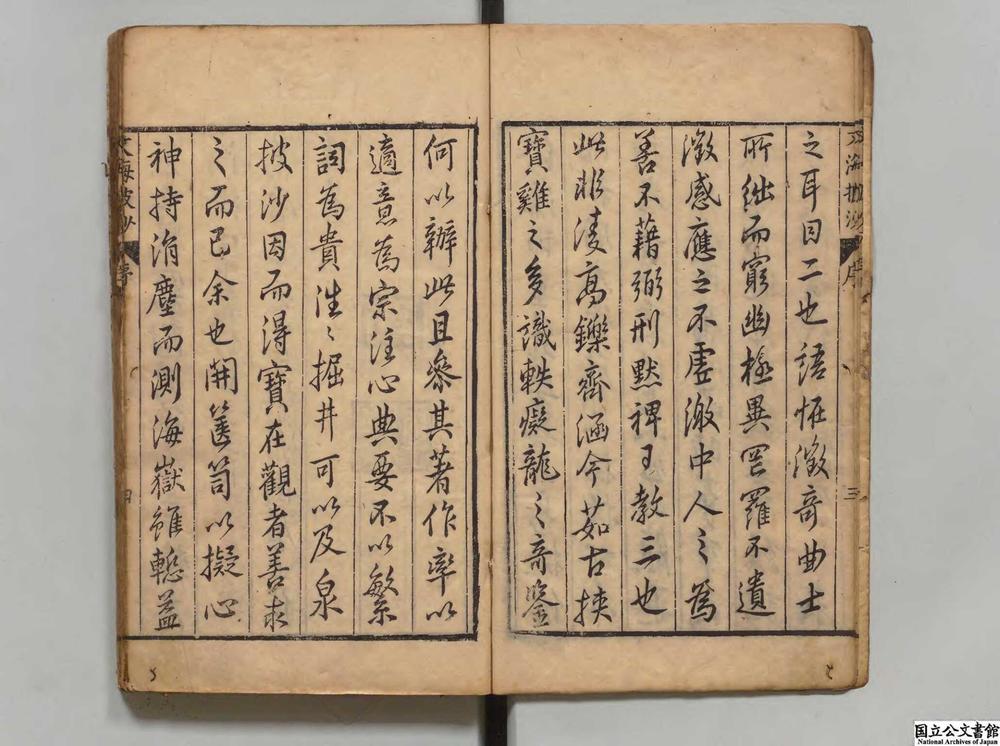 文海披沙 序 三
之耳目二也語怪徵奇曲士
所絀而窮幽極異罔羅不遺
徵感應之不虛激中人之為
善不藉弼刑默裨王教三也
此非淩高鑠齊涵今茹古挾
寶雞之多識軼癡龍之奇鑒
何以辦此且參其著作率以
適意為宗注心典要不以繁
詞為貴泩〻掘井可以及泉
披沙因而得寶在觀者善求
之而已余也開篋笥以擬心
神持涓塵而測海嶽雖慙益
文海披沙 序 四
国立公文書館
National Archives of Japan